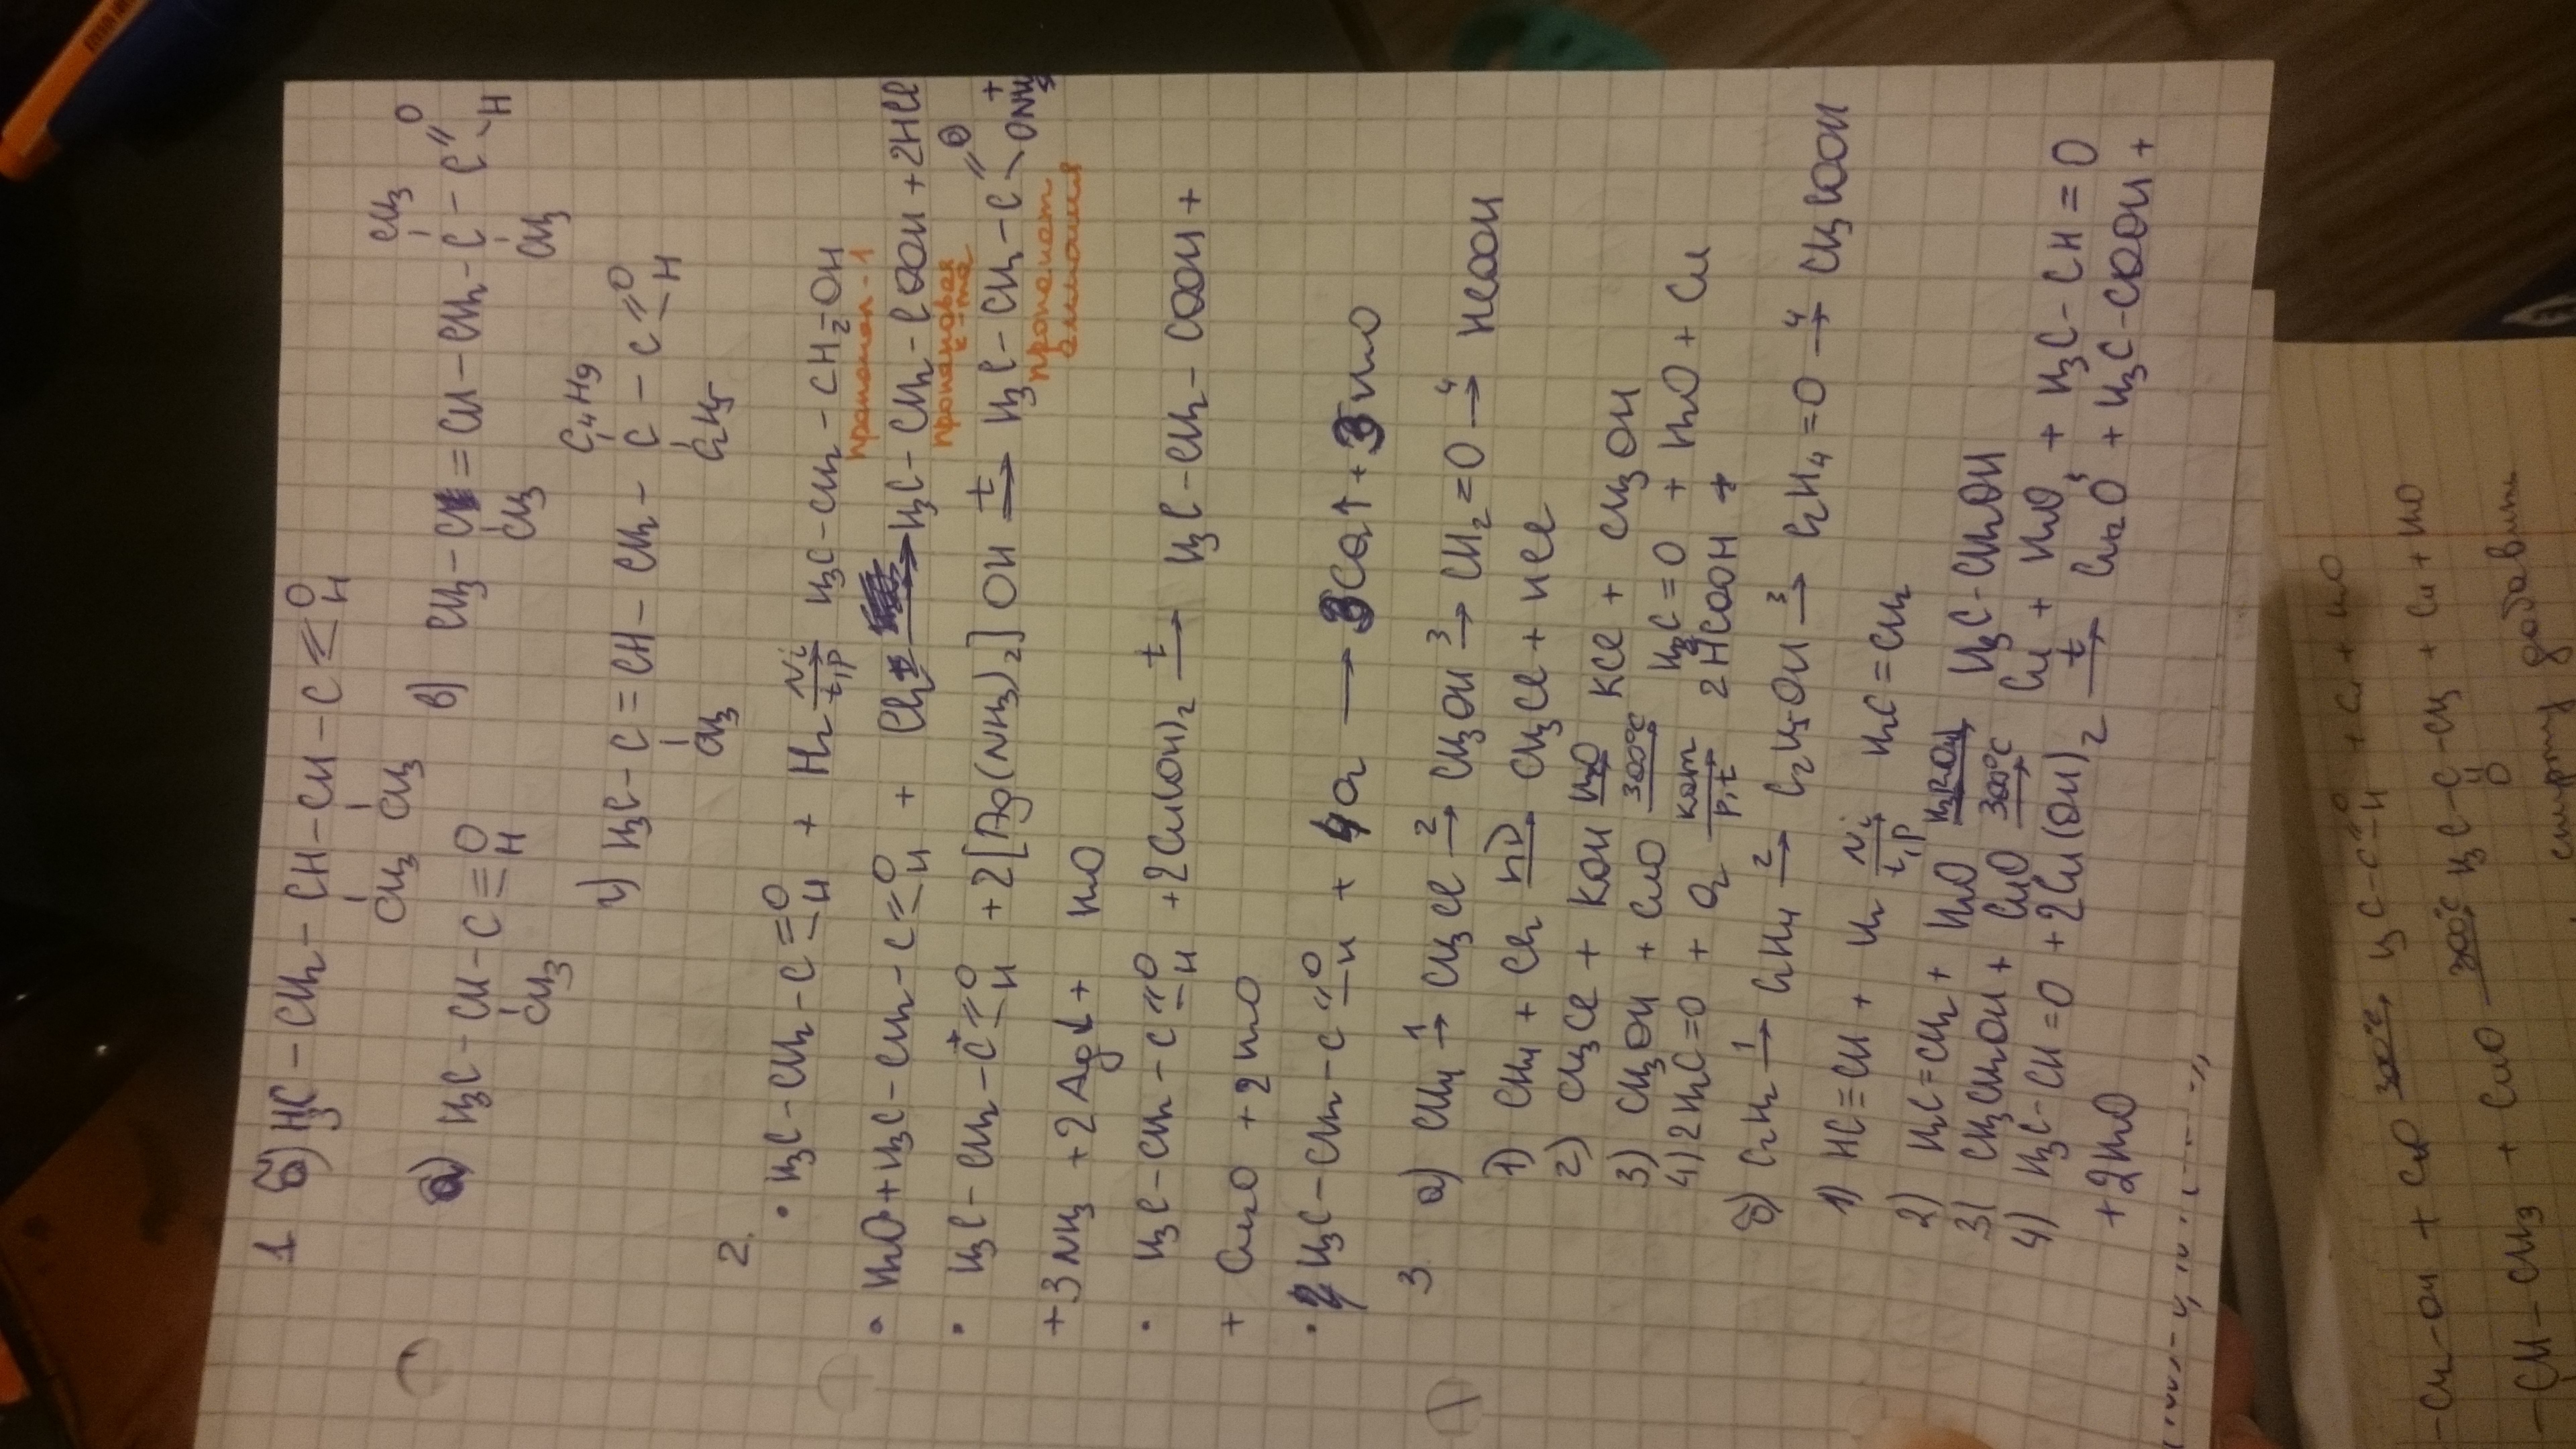 1 б) H3C – CH2 – CH – CH – C =O H
CH3 CH3
а) H3C – CH – C =O H
CH3
в) CH3 – C = CH – CH2 – C – C =O H
CH3 CH3 CH3
г) H3C – C = CH – CH2 – C – C =O H
CH3 C4H9 C2H5
2.
• H3C – CH2 – C =O H + H2 Ni t,p H3C – CH2 – CH2 – OH
пропанол-1
• H2O + H3C – CH2 – C =O H + Cl2 → H3C – CH2 – COOH + 2HCl
пропановая к-та
• H3C – CH2 – C =O H + 2[Ag(NH3)2]OH t→ H3C – CH2 – C =O ONH4 +
пропаноат аммония
+ 3NH3 + 2Ag↓ + H2O
• H3C – CH2 – C =O H + 2Cu(OH)2 t→ H3C – CH2 – COOH +
+ Cu2O + 2H2O
• H3C – CH2 – C =O H + 4O2 → 3CO2↑ + 3H2O
3. а) CH4 1→ CH3Cl 2→ CH3OH 3→ CH2=O 4→ HCOOH
1) CH4 + Cl2 hν→ CH3Cl + HCl
2) CH3Cl + KOH H2O→ KCl + CH3OH
3) CH3OH + CuO 300°C→ H2C=O + H2O + Cu
4) 2H2C=O + O2 кат p,t→ 2HCOOH
б) C2H2 1→ C2H4 2→ C2H5OH 3→ C2H4=O 4→ CH3COOH
1) HC≡CH + H2 Ni t,p→ H2C=CH2
2) H2C=CH2 + H2O H3PO4→ H3C-CH2OH
3) CH3CH2OH + CuO 300°C→ Cu + H2O + H3C-CH=O
4) H3C-CH=O + 2Cu(OH)2 t→ Cu2O + H3C-COOH +
+ 2H2O
-CH2-OH + CuO 300°C→ H3C-C =O H + Cu + H2O
-CH-CH3 + CuO 300°C H3C-C-CH3 + Cu + H2O
O
спирту добавить